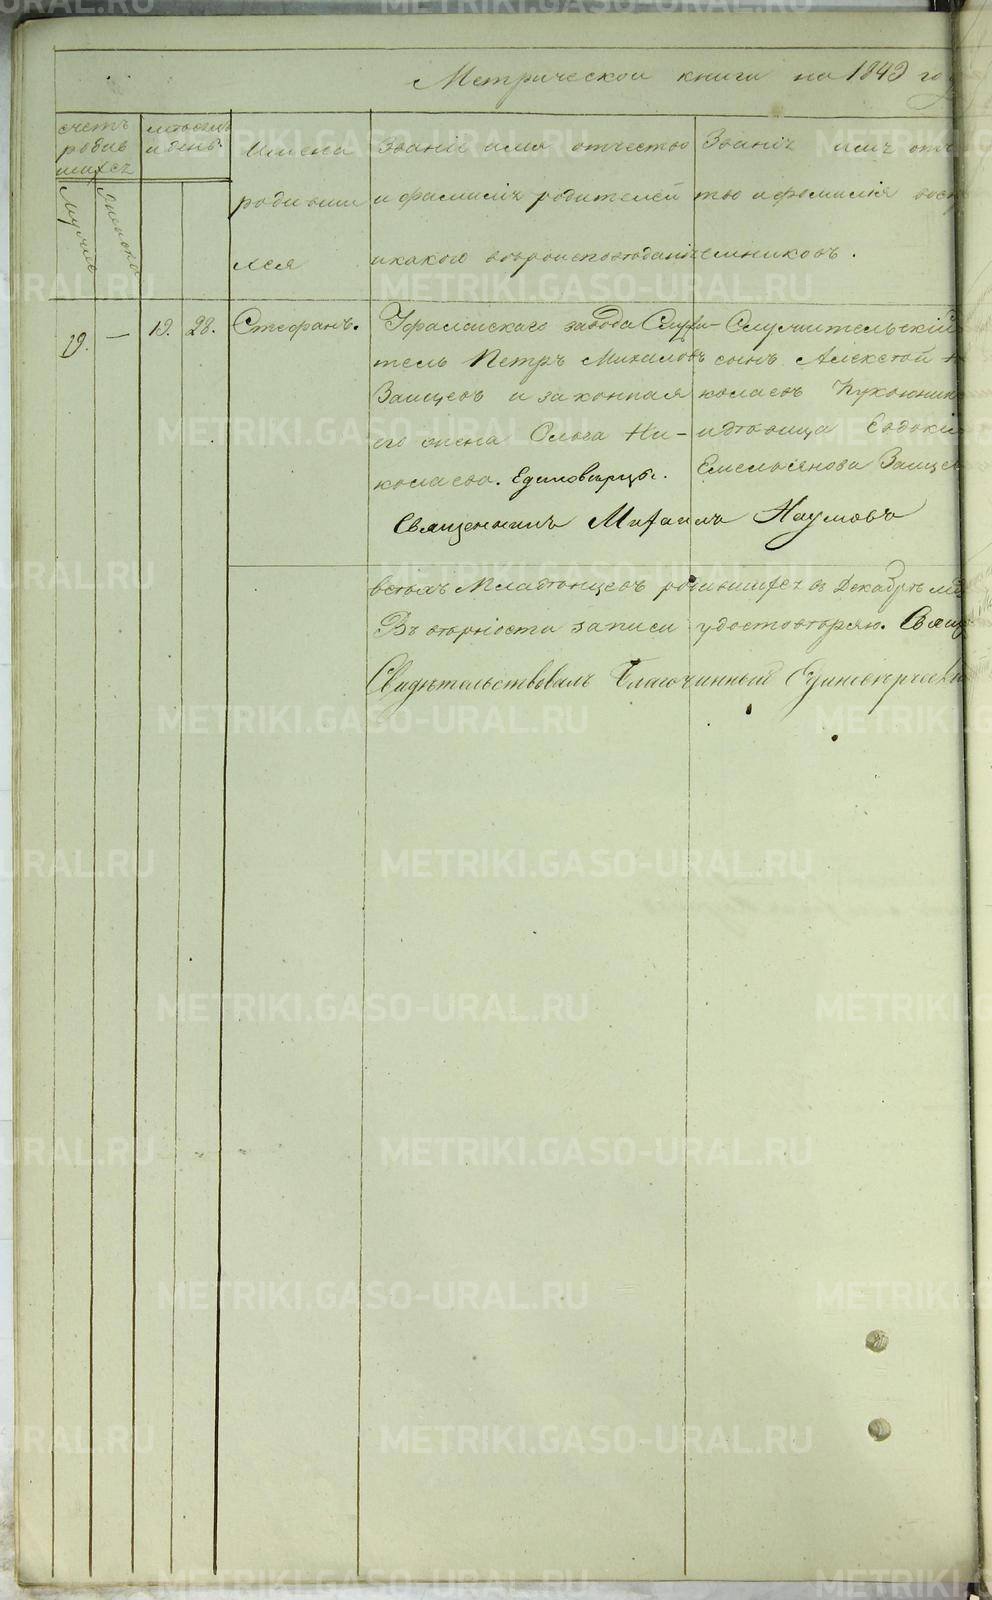 Метрической книги на 1849 го
счетъ родив шихся
мужска
женска
месецъ и день.
Имена родивши мся
Званіе имя отчество и фамилія родителей и какого вероисповеданія
Званіе имя отч тво и фамилія восп емниковъ.
19. — 19. 28. Стефанъ.
Уфалейскаго завода Служи-
тель Петръ Михаиловъ
Заицевъ и законная
его жена Ольга Ни-
колаева. Единоверцы.
Служительскій
сынъ Алексей Н
колаевъ
и девица Евдокі
Емельянова Заице
Священникъ Михаилъ Наумовъ
всехъ Младенцевъ родившихся въ Декабре ме
Въ верности записи удостоверяю. Свящ
Свидетельствовалъ Благочинный Единоверчески
METRIKI.GASO-URAL.RU